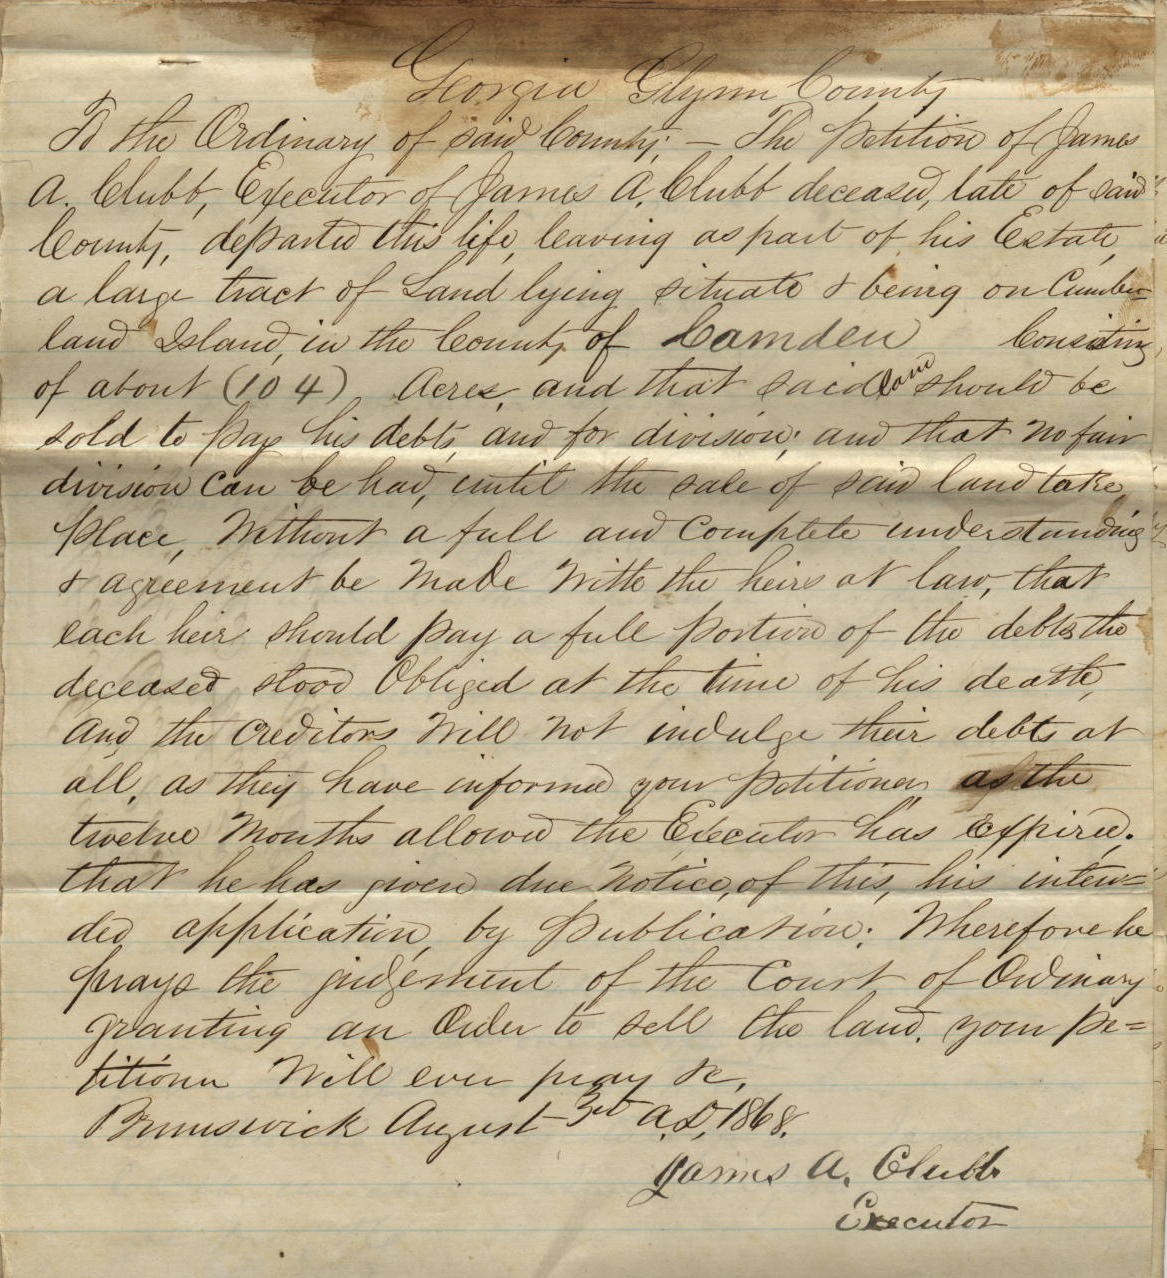 Georgia Glynn County
To the Ordinary of said County; — The Petition of James
A. Clubb, Executor of James A. Clubb deceased, late of said
County, departed this life, leaving as part of his Estate,
a large tract of Land lying situate & being on Cumber=
land Island, in the County of Camden Consisting
of about (104) Acres, and that said land should be
sold to pay his debts, and for division; and that no fair
division can be had, until the sale of said land take
place, Without a full and Complete understanding
& agreement be Made With the heirs at law, that
each heir should pay a full portion of the debts the
deceased stood Obliged at the time of his death,
and the Creditors Will Not indulge their debts at
all, as they have informed your Petitioner as the
twelve Months allowed the Executor has Expired.
that he has given due Notice, of this, his inten=
ded application, by Publication; Wherefore he
prays the judgement of the Court of Ordinary
granting an Order to sell the land. your pe=
titioner Will ever pray &c,
Brunswick August 3rd A.D, 1868.
James A. Clubb
Executor